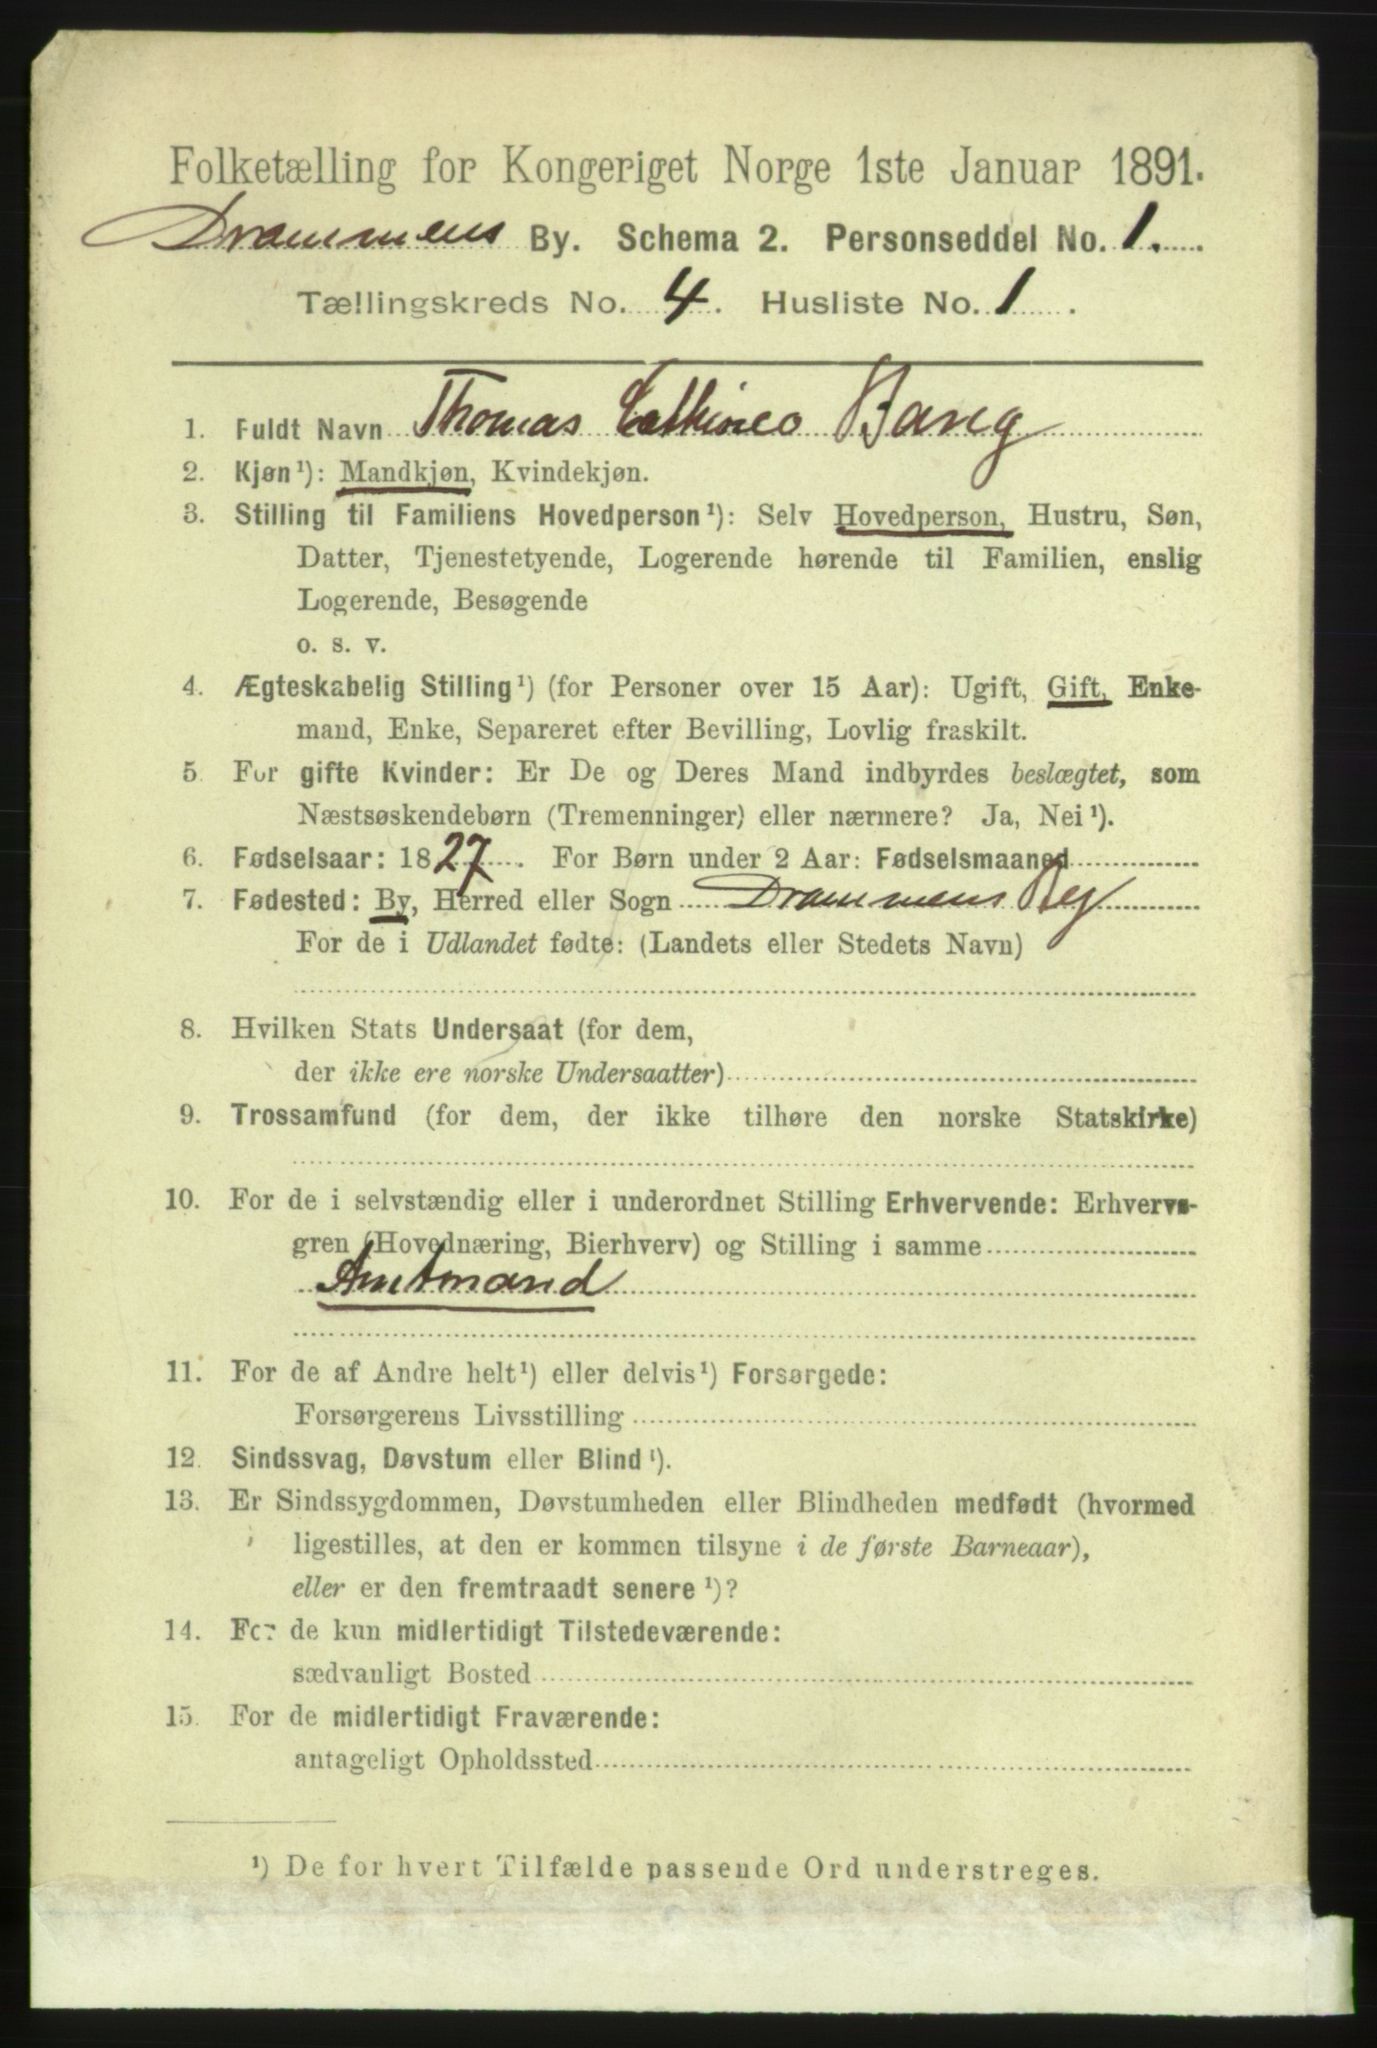 Folketælling for Kongeriget Norge 1ste Januar 1891.
Drammens By. Schema 2. Personseddel No. 1.
Tællingskreds No. 4. Husliste No. 1.
1. Fuldt Navn Thomas Cathinco Bang
2. Kjøn¹): Mandkjøn, Kvindekjøn.
3. Stilling til Familiens Hovedperson¹): Selv Hovedperson, Hustru, Søn,
Datter, Tjenestetyende, Logerende hørende til Familien, enslig
Logerende, Besøgende
o. s. v.
4. Ægteskabelig Stilling¹) (for Personer over 15 Aar): Ugift, Gift, Enke-
mand, Enke, Separeret efter Bevilling, Lovlig fraskilt.
5. For gifte Kvinder: Er De og Deres Mand indbyrdes beslægtet, som
Næstsøskendebørn (Tremenninger) eller nærmere? Ja, Nei¹).
6. Fødselsaar: 1827. For Børn under 2 Aar: Fødselsmaaned
7. Fødested: By, Herred eller Sogn Drammens By
For de i Udlandet fødte: (Landets eller Stedets Navn)
8. Hvilken Stats Undersaat (for dem,
der ikke ere norske Undersaatter)
9. Trossamfund (for dem, der ikke tilhøre den norske Statskirke)
10. For de i selvstændig eller i underordnet Stilling Erhvervende: Erhvervs-
gren (Hovednæring, Bierhverv) og Stilling i samme
Amtmand
11. For de af Andre helt¹) eller delvis¹) Forsørgede:
Forsørgerens Livsstilling
12. Sindssvag, Døvstum eller Blind¹).
13. Er Sindssygdommen, Døvstumheden eller Blindheden medfødt (hvormed
ligestilles, at den er kommen tilsyne i de første Barneaar),
eller er den fremtraadt senere¹)?
14. For de kun midlertidigt Tilstedeværende:
sædvanligt Bosted
15. For de midlertidigt Fraværende:
antageligt Opholdssted
¹) De for hvert Tilfælde passende Ord understreges.